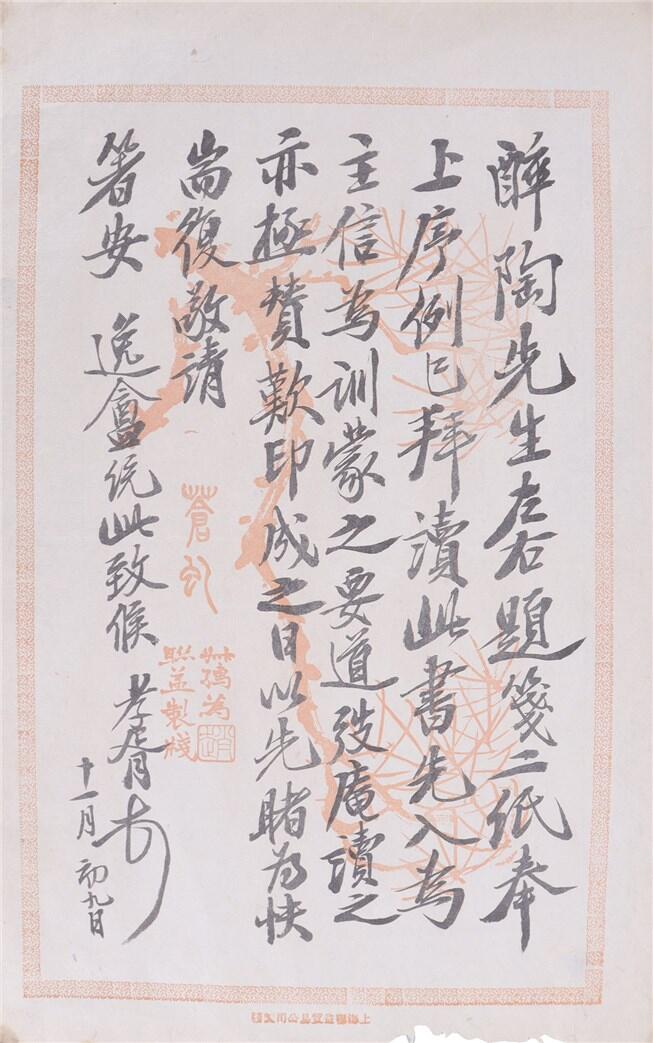 醉陶先生左右題箋二紙奉
上序例已拜讀此書先入為
主信為訓蒙之要道弢庵讀之
亦極贊歎印成之日以先睹為快
耑復敬請
箸安 逸盦統此致候 孝胥
十一月初九日
蒼虬
為
聯益製牋